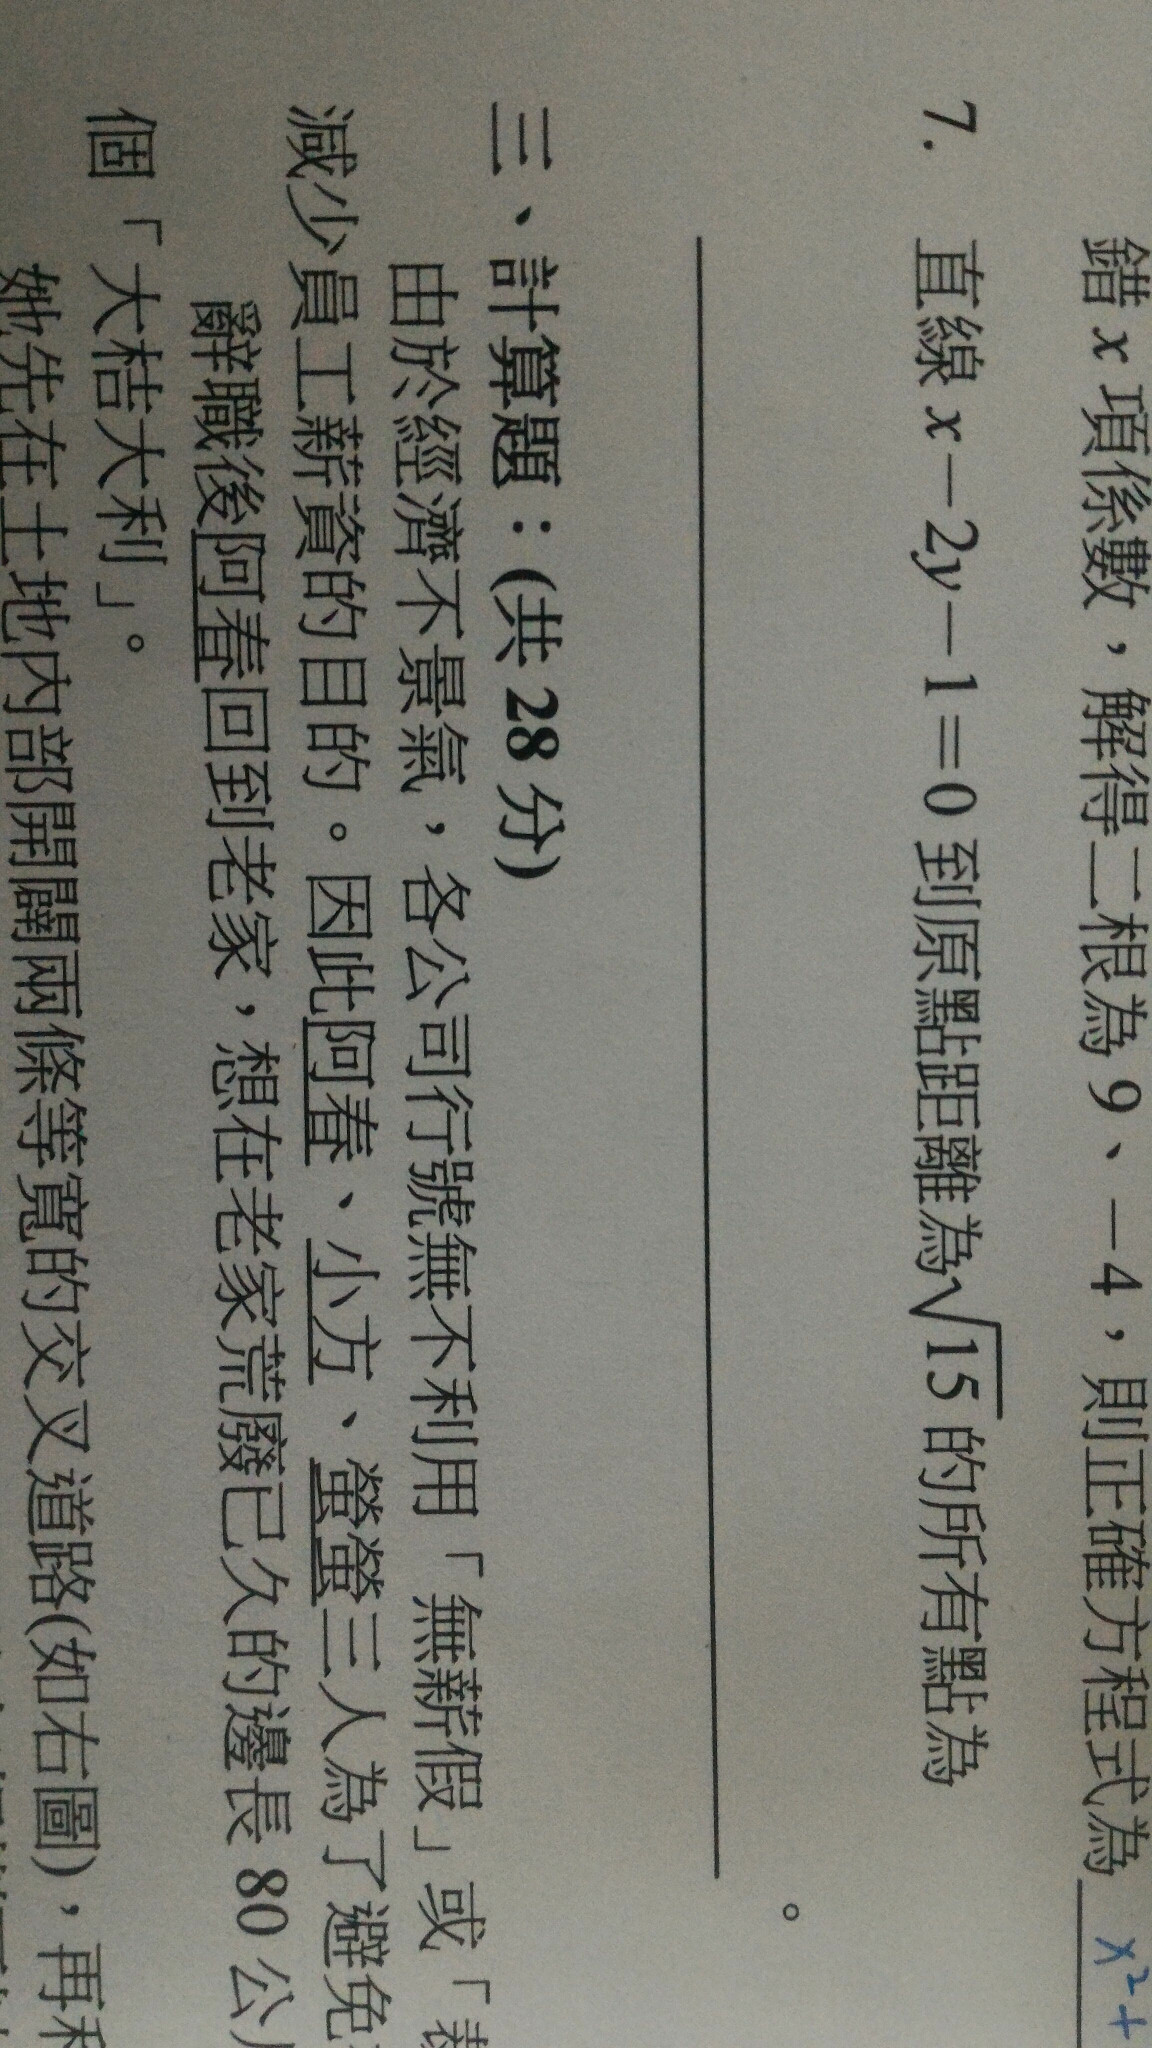 錯 x 項係數，解得二根為 9、－4，則正確方程式為 x²+
7. 直線 x－2y－1＝0 到原點距離為√15 的所有點為
。
三、計算題：(共 28 分)
由於經濟不景氣，各公司行號無不利用「無薪假」或「裁
減少員工薪資的目的。因此阿春、小方、螢螢三人為了避免
辭職後阿春回到老家，想在老家荒廢已久的邊長 80 公
個「大桔大利」。
她先在土地內部開闢兩條等寬的交叉道路(如右圖)，再